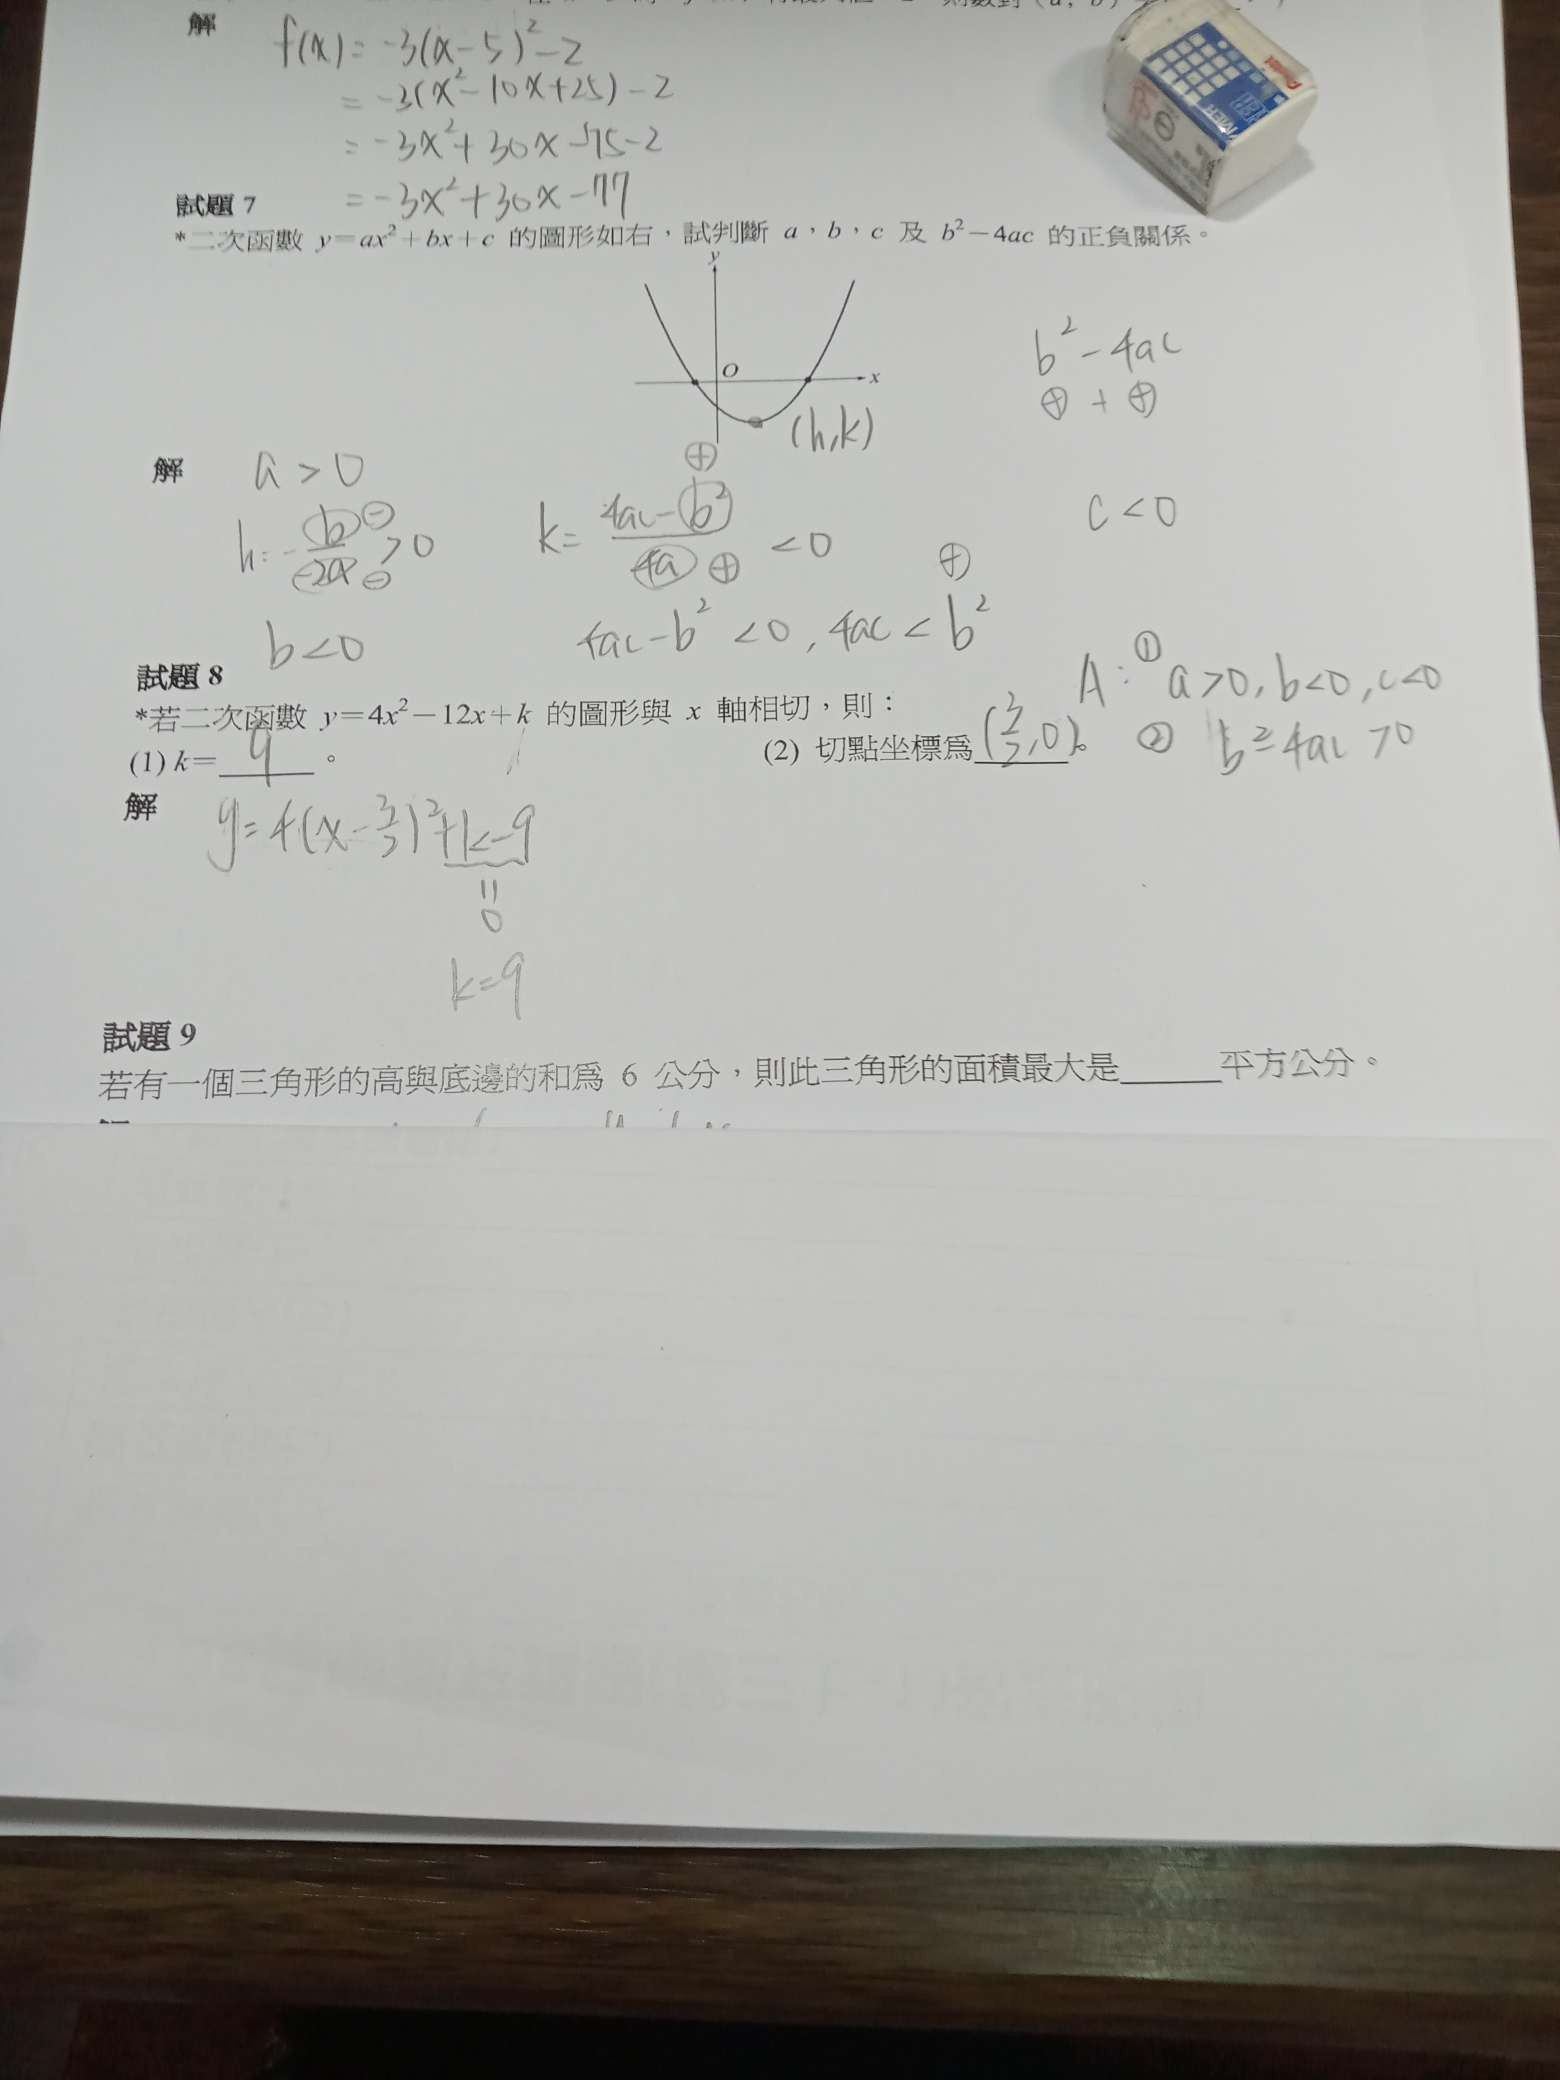 解
f(x) = -3(x-5)²-2
= -3(x²-10x+25)-2
= -3x²+30x-75-2
= -3x²+30x-77
試題 7
*二次函數 y=ax²+bx+c 的圖形如右，試判斷 a，b，c 及 b²-4ac 的正負關係。
y
O
x
(h,k)
b²-4ac
⊕ + ⊕
解
a>0
h=-b/-2a>0
⊖
⊖
b<0
⊕
k=4ac-b²/4a<0
⊕
⊕
4ac-b²<0, 4ac<b²
c<0
A: ① a>0, b<0, c<0
② b²-4ac>0
試題 8
*若二次函數 y=4x²-12x+k 的圖形與 x 軸相切，則：
(1) k=9。 (2) 切點坐標為(3/2,0)。
解
y=4(x-3/2)²+k-9
=
0
k=9
試題 9
若有一個三角形的高與底邊的和為 6 公分，則此三角形的面積最大是______平方公分。
Pentel